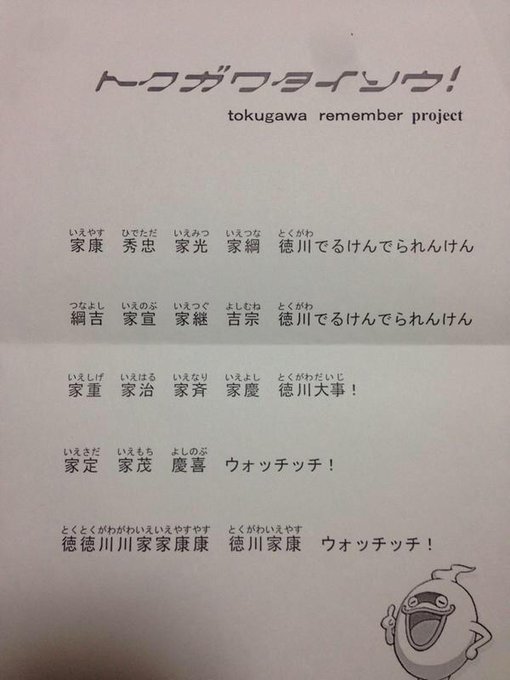 トクガワタイソウ!
tokugawa remember project
いえやす ひでただ いえみつ いえつな とくがわ
家康 秀忠 家光 家綱 徳川でるけんでられんけん
つなよし いえのぶ いえつぐ よしむね とくがわ
綱吉 家宣 家継 吉宗 徳川でるけんでられんけん
いえしげ いえはる いえなり いえよし とくがわだいじ
家重 家治 家斉 家慶 徳川大事!
いえさだ いえもち よしのぶ
家定 家茂 慶喜 ウォッチッチ!
とくとくがわがわいえいえやすやす とくがわいえやす
徳徳川川家家康康 徳川家康 ウォッチッチ!